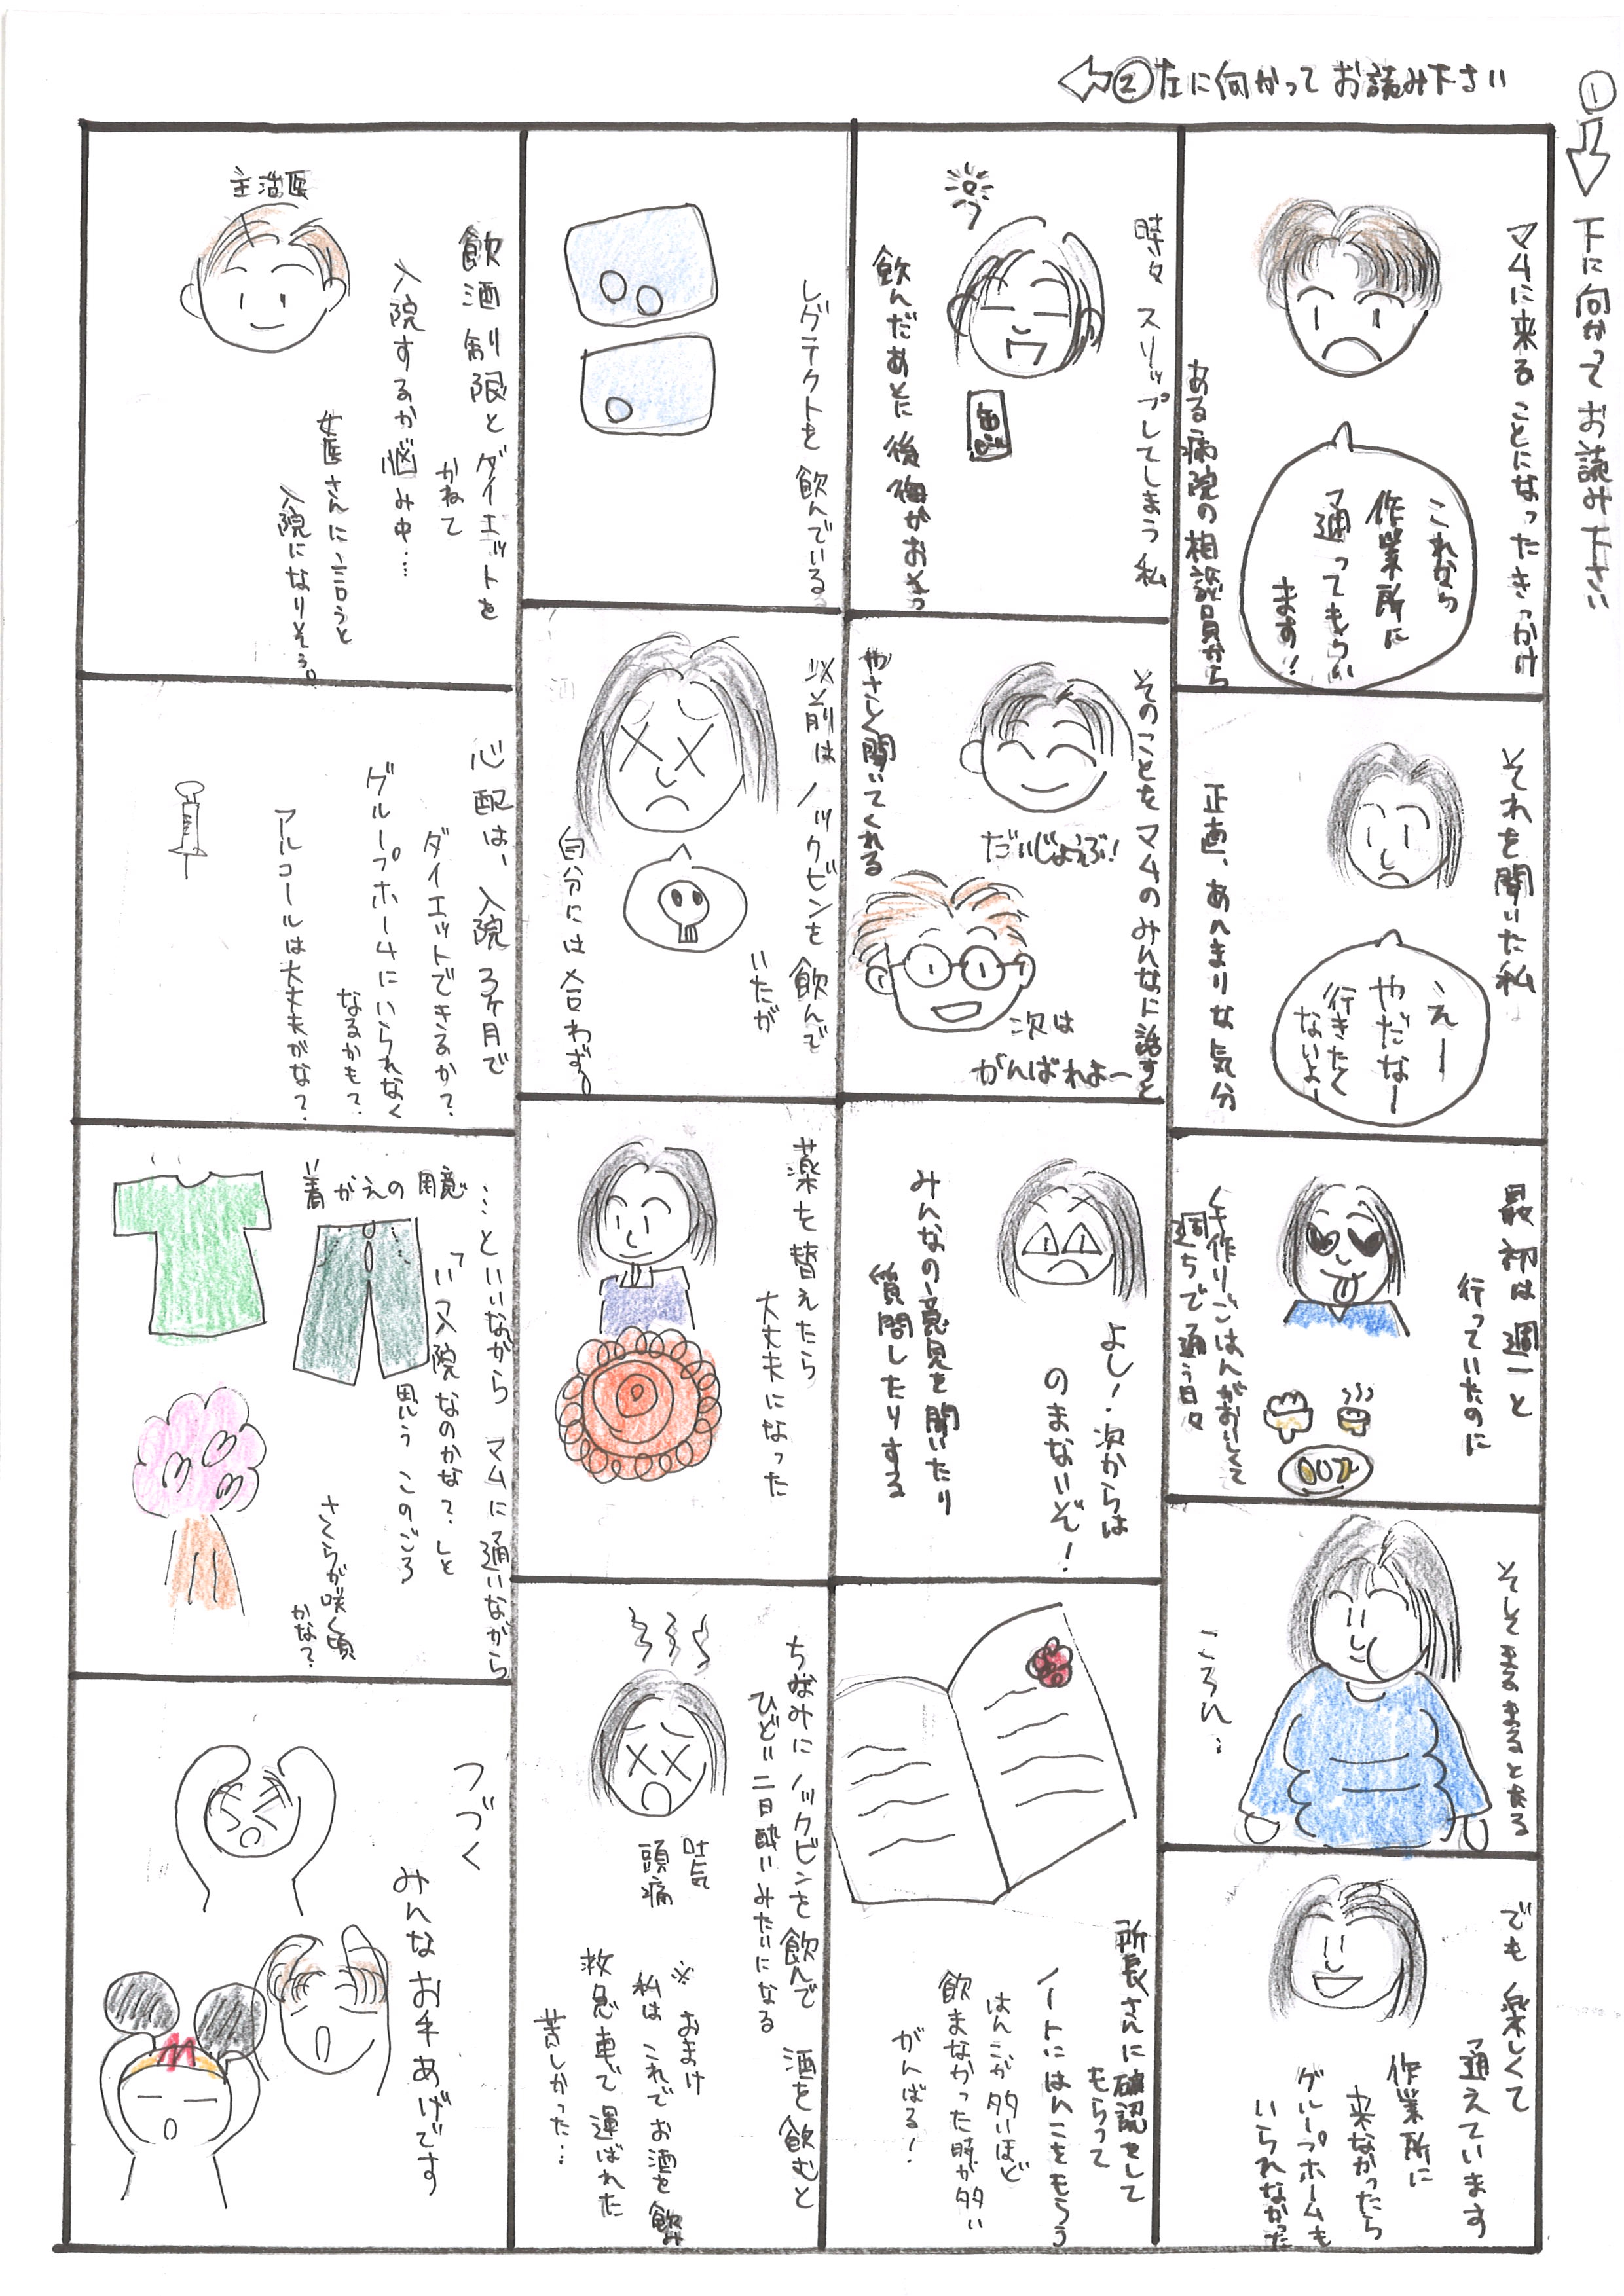 ①⇩下に向かってお読み下さい
⇦②左に向かってお読み下さい
マムに来ることになったきっかけ
これから
作業所に
通ってもらい
ます!!
ある病院の相談員から
それを聞いた私
えー
やだなー
行きたく
ないよー
正直、あんまりな気分
最初は週一と
行っていたのに
手作りごはんがおいしくて
週5で通う日々
そしてまるまると太る
ころん…
でも楽しくて
通えています
作業所に
来なかったら
グループホームも
いられなかった
時々スリップしてしまう私
飲んだあとに後悔がおそう
そのことをマムのみんなに話すと
だいじょうぶ!
次は
がんばれよー
やさしく聞いてくれる
よし!次からは
のまないぞ!
みんなの意見を聞いたり
質問したりする
所長さんに確認をして
もらって
ノートにはんこをもらう
はんこが多いほど
飲まなかった時が多い
がんばる!
レグテクトを飲んでいる
以前はノックビンを飲んで
いたが
自分には合わず。
薬を替えたら
大丈夫になった
ちなみにノックビンを飲んで酒を飲むと
ひどい二日酔いみたいになる
吐気
頭痛
※おまけ
私はこれでお酒を飲み
救急車で運ばれた
苦しかった…
主治医
飲酒制限とダイエットを
かねて
入院するか悩み中…
女医さんに言うと
入院になりそう。
心配は、入院3ヶ月で
ダイエットできるか?
グループホームにいられなく
なるかも?
アルコールは大丈夫かな?
…といいながらマムに通いながら
「いつ入院なのかな?」と
思うこのごろ
着がえの用意
さくらが咲く頃
かな?
つづく
みんなお手あげです